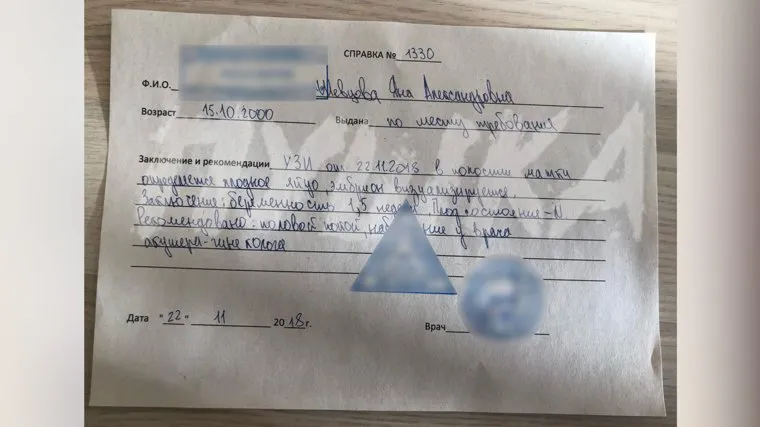 СПРАВКА № 1330
Ф.И.О. Шевцова Яна Александровна
Возраст 15.10.2000 Выдана по месту требования
Заключение и рекомендации УЗИ от 22.11.2018 в полости матки
определяется плодное яйцо эмбрион визуализируется.
Заключение: беременность 1,5 недел
Рекомендовано: половой покой, у врача
акушера-гинеколога
Дата "22" 11 2018г. Врач